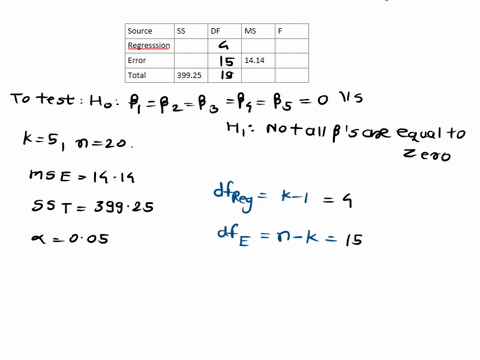 Source SS DF MS F
Regresssion 4
Error 15 14.14
Total 399.25 19
To test: H₀: β₁ = β₂ = β₃ = β₄ = β₅ = 0 V/s
H₁: Not all β's are equal to
zero
k=5, n=20.
MSE = 14.14
SST = 399.25
α = 0.05
df_Reg = k-1 = 4
df_E = n-k = 15